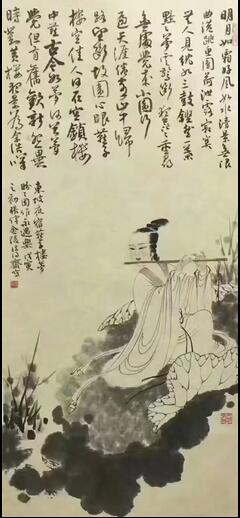 明月如霜好風如水清景無限
曲港跳魚圓荷瀉露寂寞
無人見紞如三鼓鏗然一葉
黯黯夢雲驚斷夜茫茫重尋
無處覺來小園行
遍天涯倦客山中歸
路望斷故園心眼燕子
樓空佳人何在空鎖樓
中燕古今如夢何曾夢
覺但有舊歡新怨異
時對黃樓夜景為余浩嘆
東坡夜宿燕子樓夢
盼盼因作永遇樂戊寅
之初